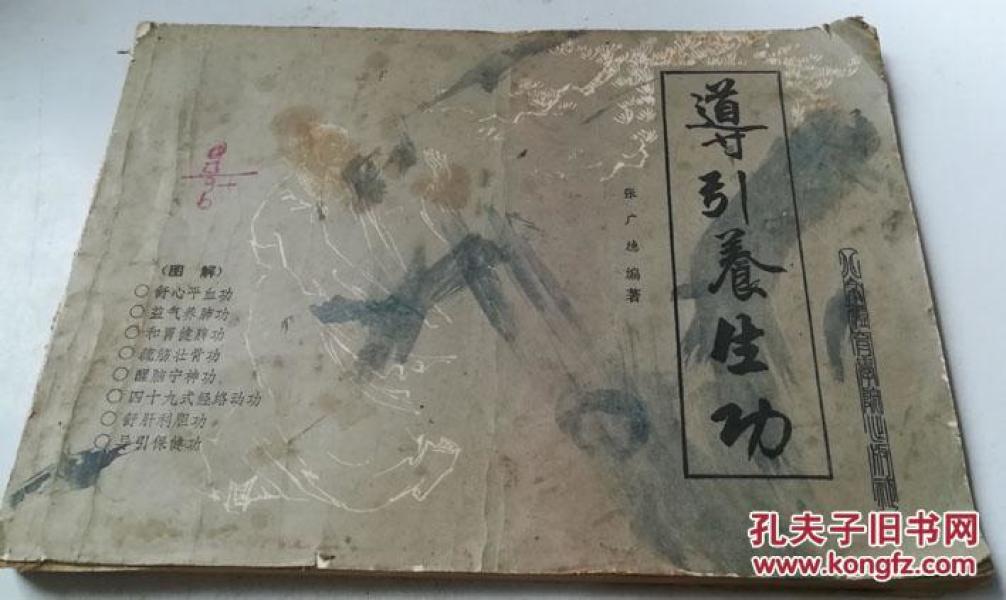 導引養生功
张广德编著
北京體育學院出版社
(图解)
○舒心平血功
○益气养肺功
○和胃健脾功
○疏筋壮骨功
○醒脑宁神功
○四十九式经络动功
○舒肝利胆功
○导引保健功
孔夫子旧书网
www.kongfz.com